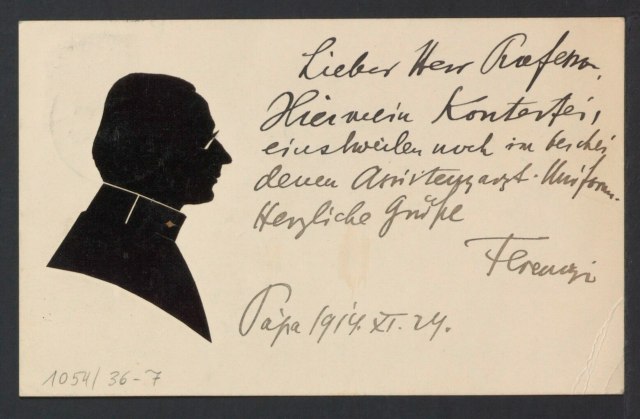 Lieber Herr Professor,
Hier mein Konterfei,
einstweilen noch im beschei
denen Assistenzarzt-Uniform.
Herzliche Grüße
Ferenczi
Pápa 1914. XI. 24.
1054/36-7